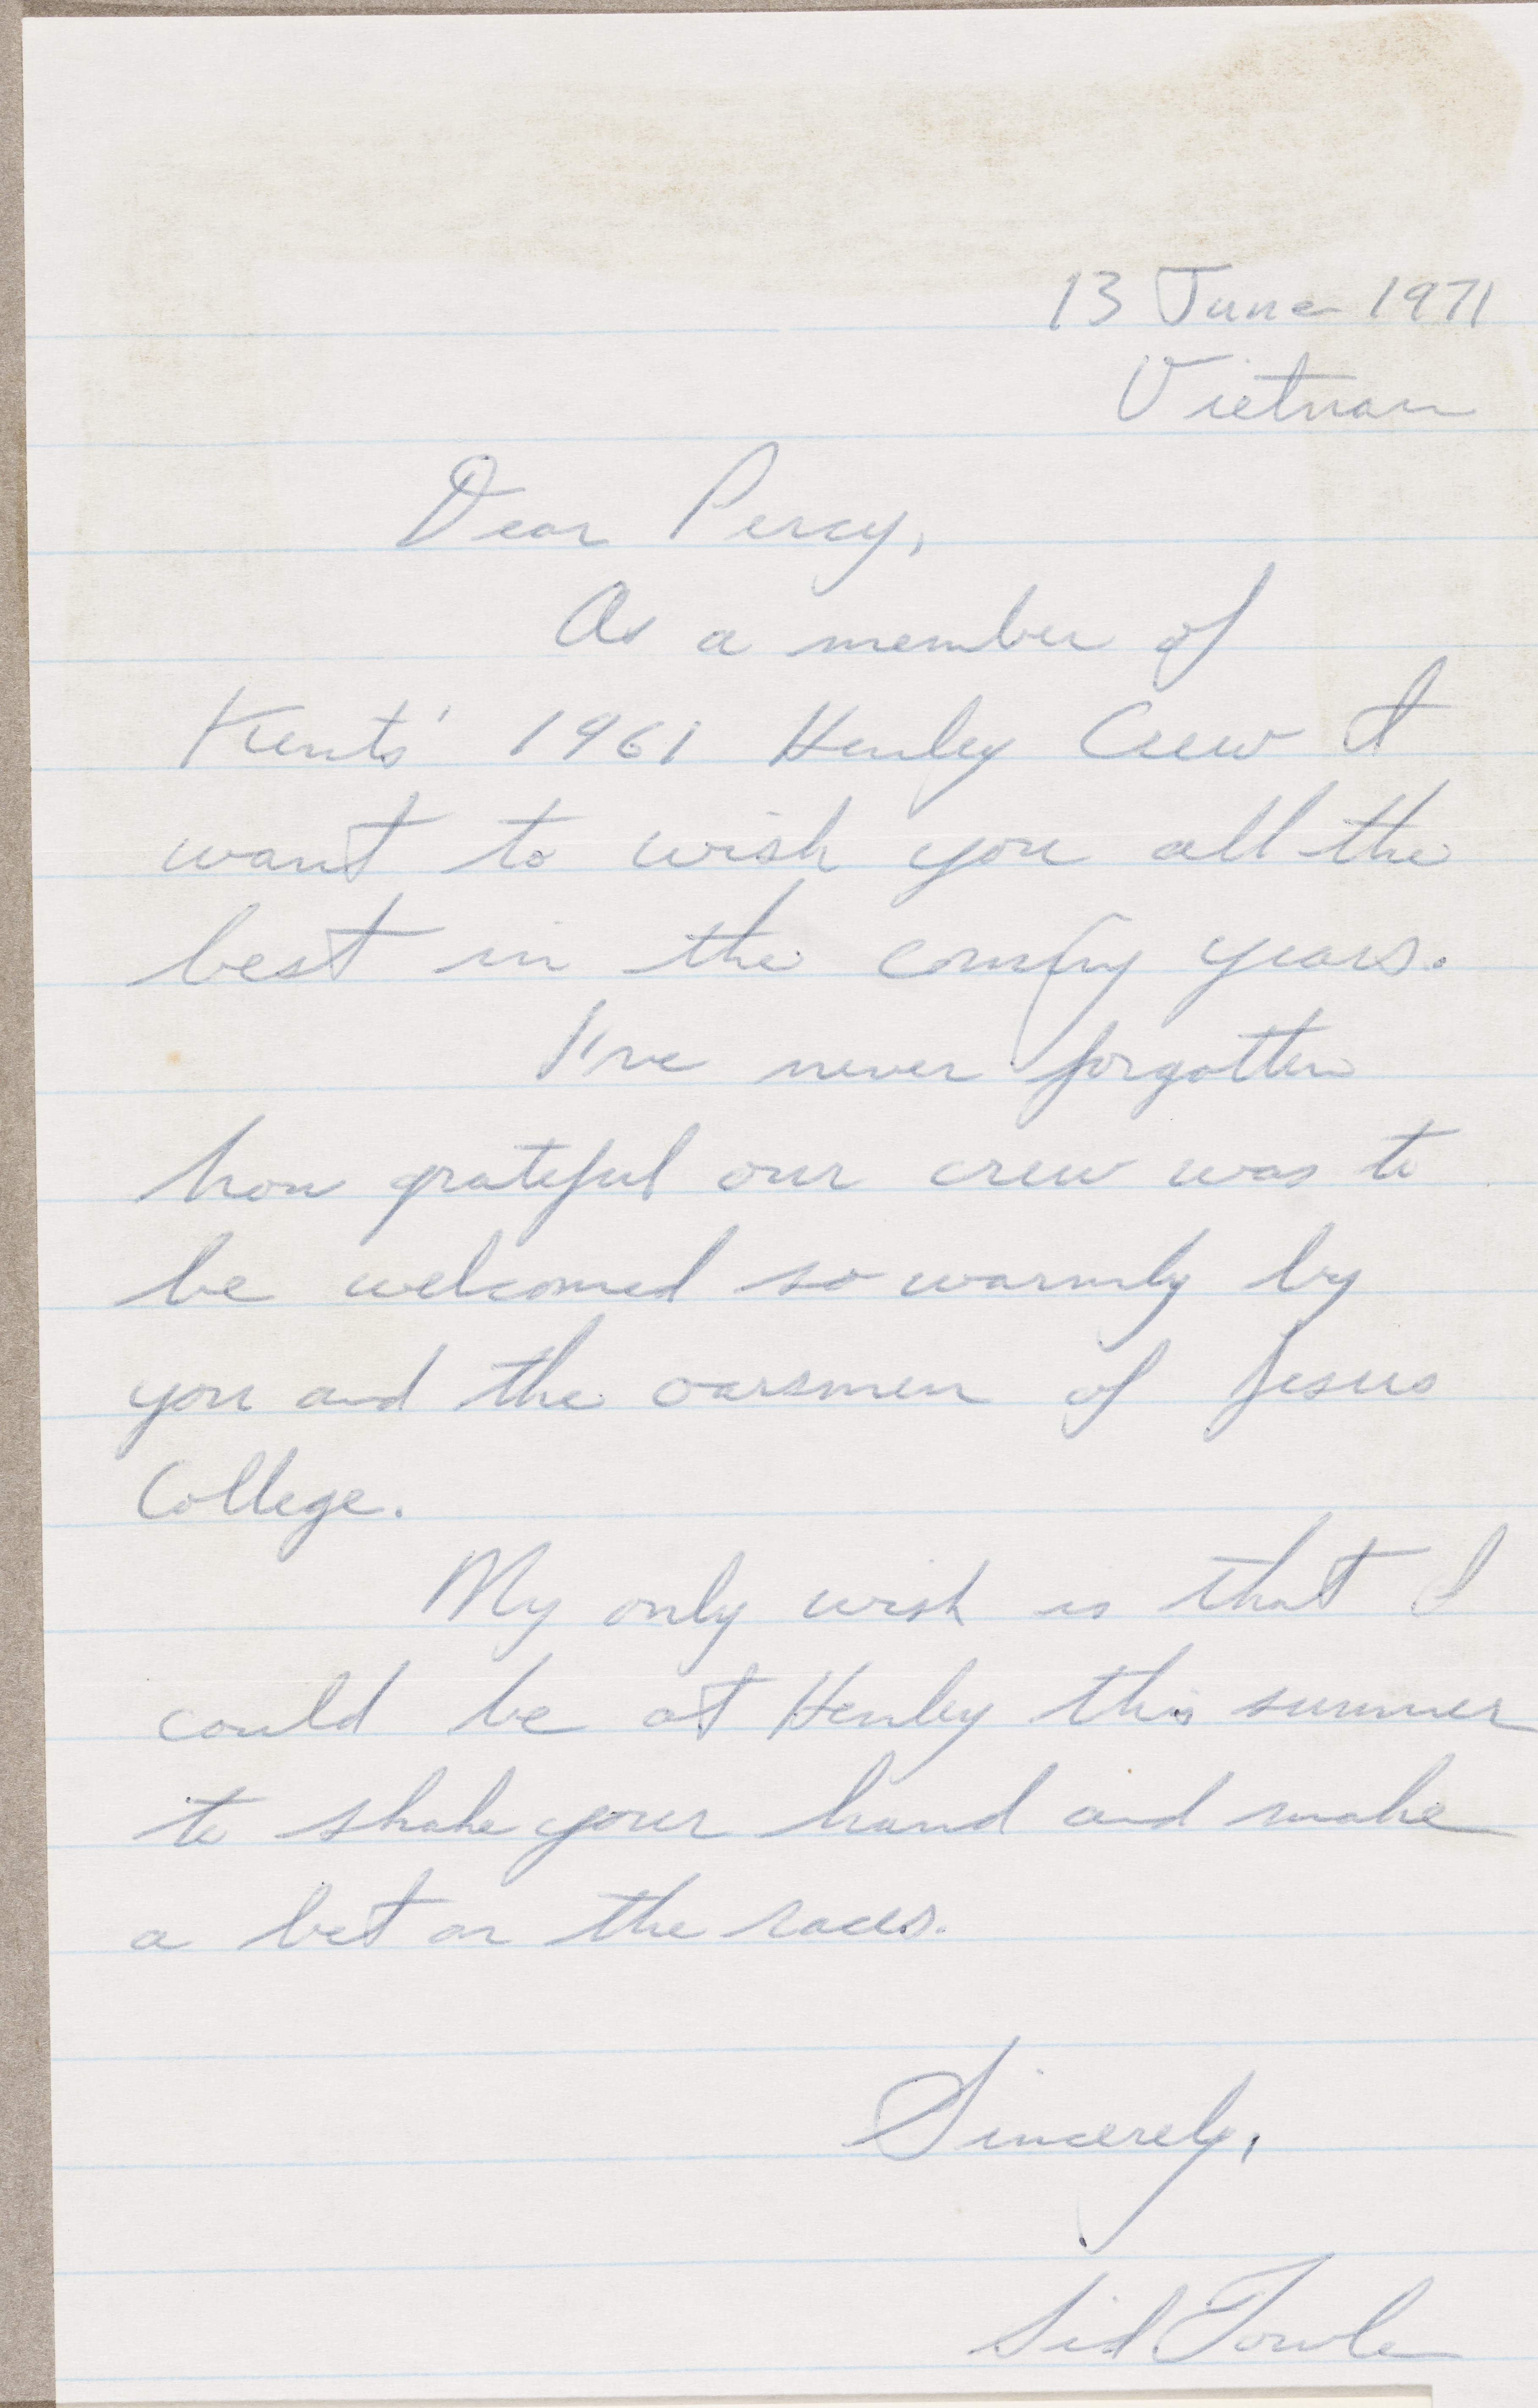 13 June 1971
Vietnam
Dear Percy,
As a member of
Kents' 1961 Henley Crew I
want to wish you all the
best in the coming years.
I've never forgotten
how grateful our crew was to
be welcomed so warmly by
you and the oarsmen of Jesus
College.
My only wish is that I
could be at Henley this summer
to shake your hand and make
a bet on the races.
Sincerely,
Sid Towle